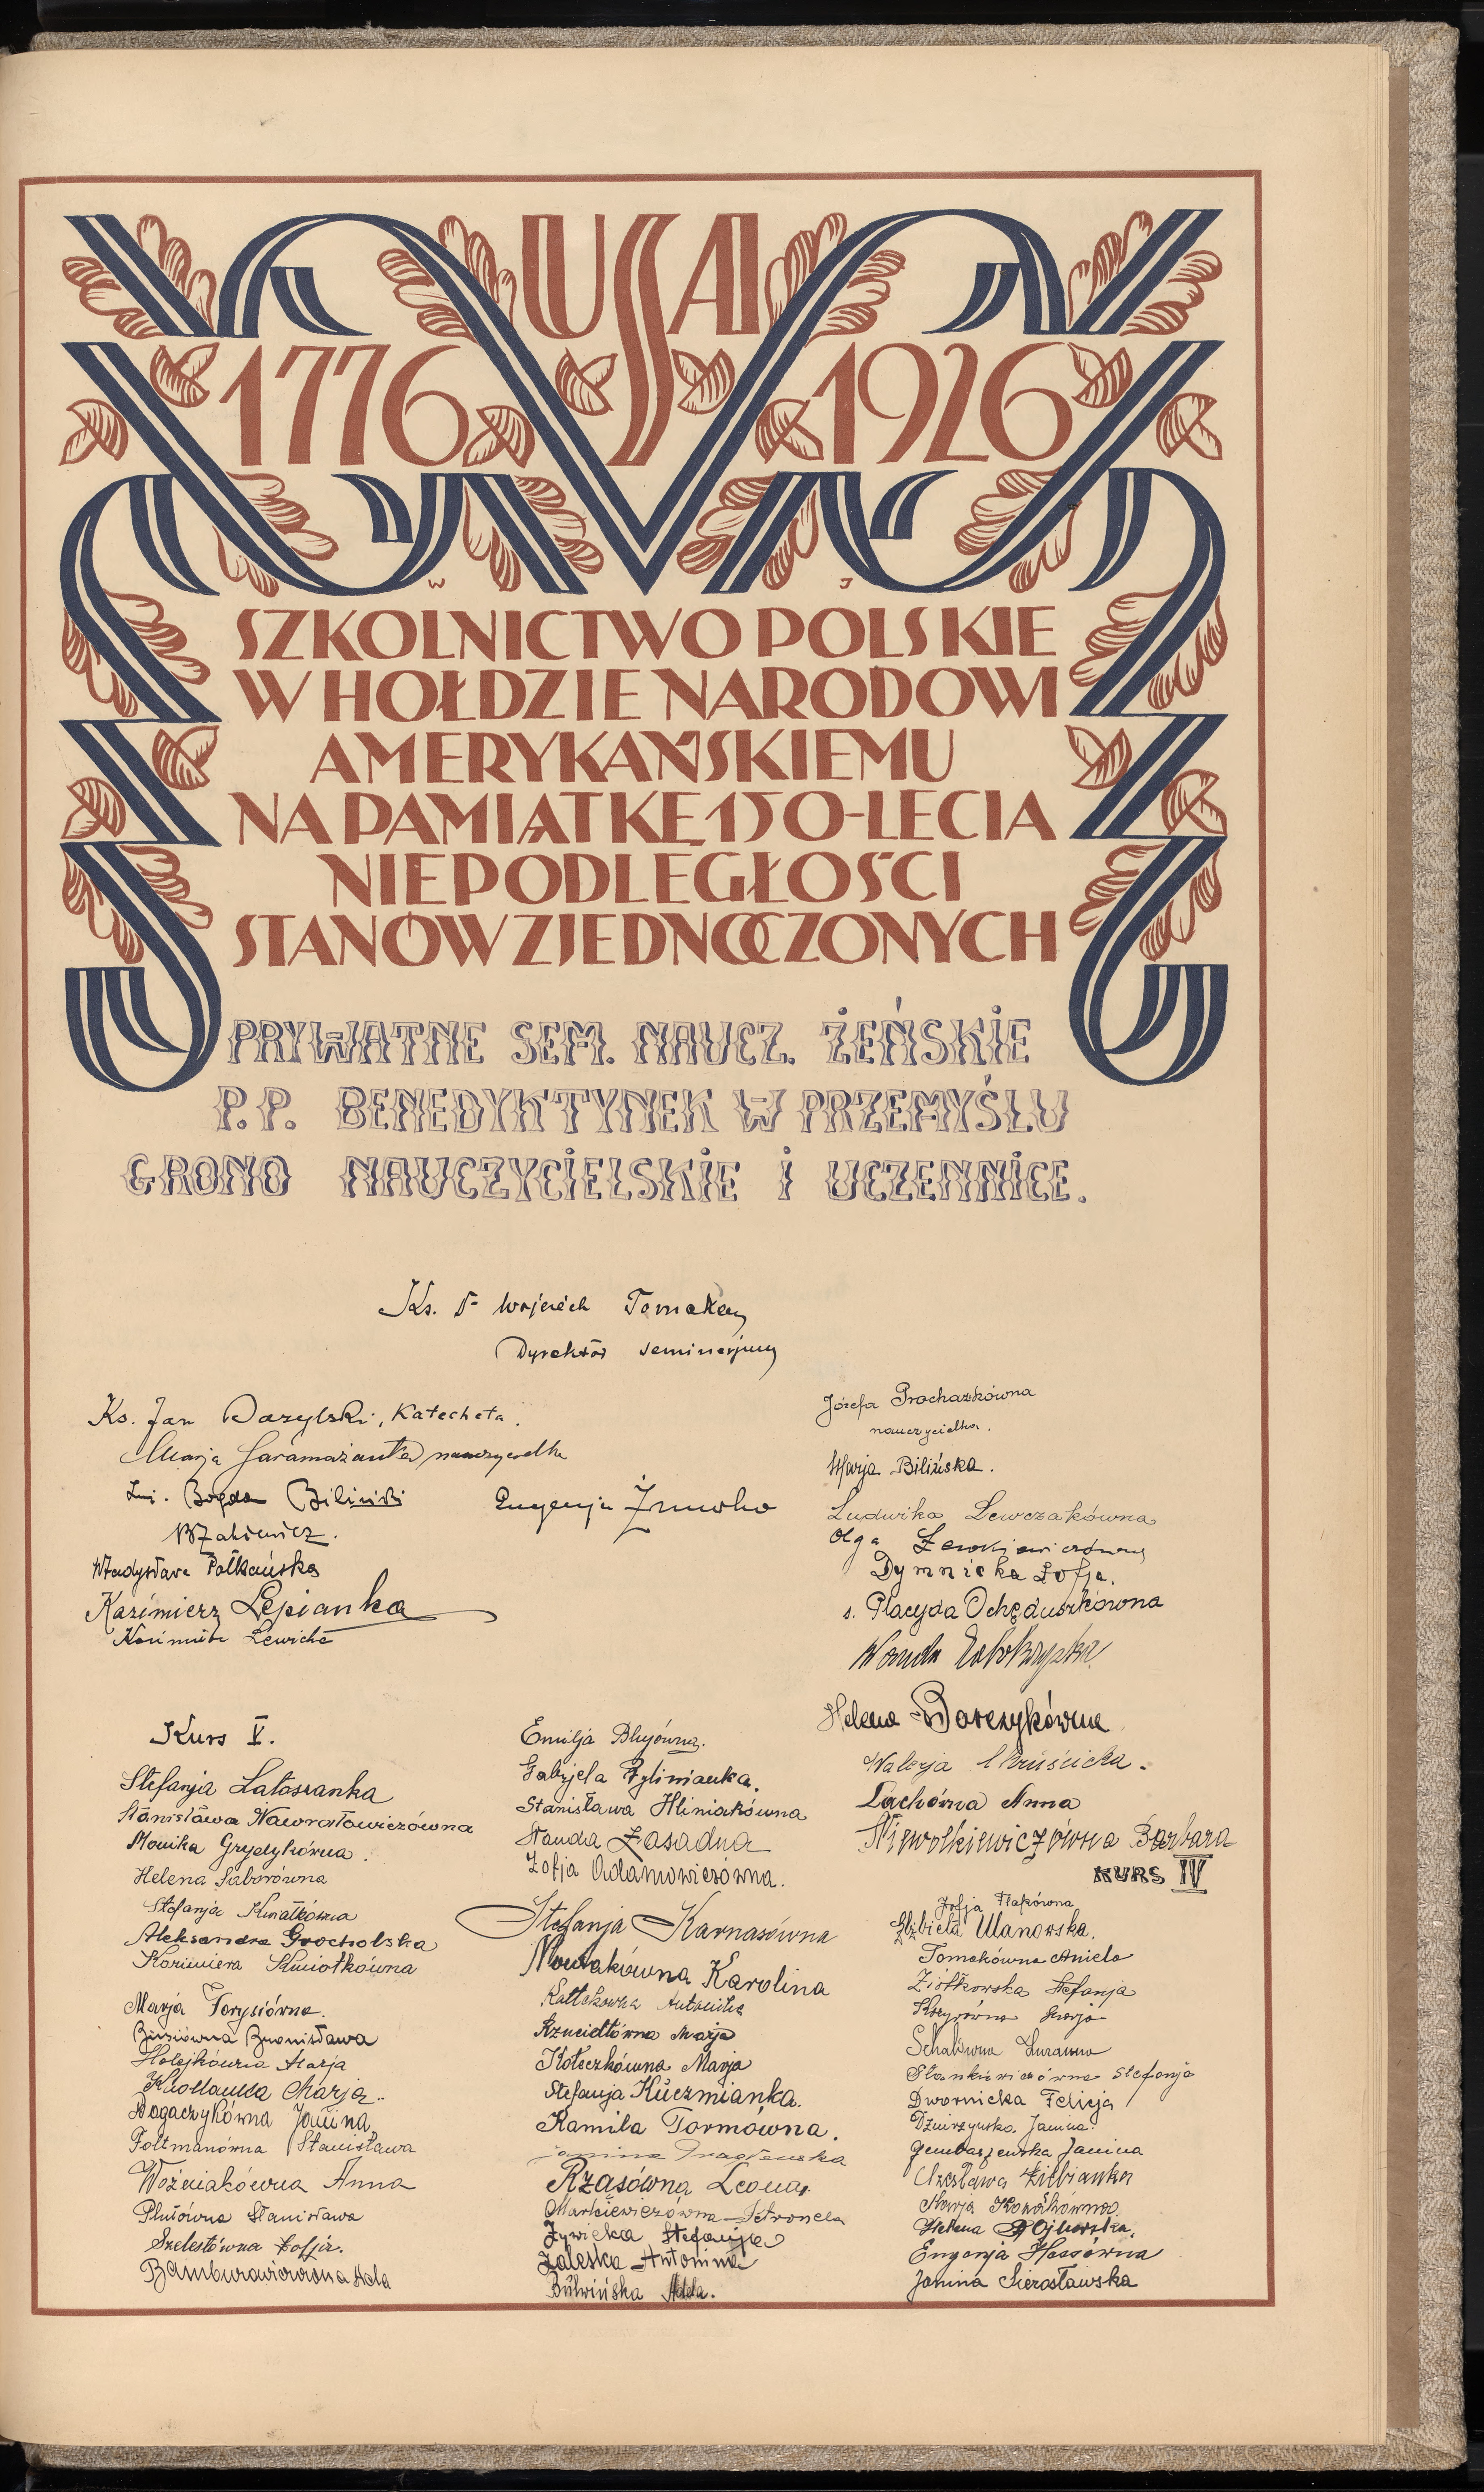 USA
1776 1926
W J
SZKOLNICTWO POLSKIE
W HOŁDZIE NARODOWI
AMERYKAŃSKIEMU
NA PAMIĄTKĘ 150-LECIA
NIEPODLEGŁOŚCI
STANÓW ZJEDNOCZONYCH
PRYWATNE SEM. NAUCZ. ŻEŃSKIE
P.P. BENEDYKTYNEK W PRZEMYŚLU
GRONO NAUCZYCIELSKIE I UCZENNICE.
Ks. Dr Wojciech Tomaka
Dyrektor seminarjum
Ks. Jan Dazylski, Katecheta.
Marja nauczycielka
Bogdan Biliński
Władysława Pałkańska
Kazimierz Lepianka
Lewicka
Eugenja Żmurko
Józefa Prochazkówna
nauczycielka.
Marja Bilińska.
Ludwika Lewczakówna
Olga
Dymnicka Zofja.
s. Placyda Ochęduszkówna
Wanda
Helena Borczykówna
Walerja Chruścicka.
Lachówna Anna
Niewolkiewiczówna Barbara
Kurs V.
Stefanja Latossanka
Stanisława Nawratowiczówna
Monika Grydykówna.
Helena Saborówna
Stefanja Kwiatkówna
Aleksandra Grocholska
Kazimiera Kmiotkówna
Marja Torysiówna.
Bronisława
Holejkówna Marja
Marja
Dogaczykówna Janina
Foltmanówna Stanisława
Woźniakówna Anna
Plutówna Stanisława
Szelestówna Zofja.
Ada
Emilja Blujówna.
Gabrjela Rylinianka.
Stanisława Hliniakówna
Wanda Zasadna
Zofja Adamowiczówna.
Stefanja Karnasówna
Nowakówna Karolina
Antonina
Rzucidłówna Marja
Kołeczkówna Marja
Stefanja Kuczmianka.
Kamila Tormówna.
Janina
Rząsówna Leona
Markiewiczówna Petronela
Żywicka Stefanja
Zaleska Antonina
Bulwińska Adela.
KURS IV
Zofja Flakówna
Elżbieta Ulanowska.
Tomakówna Aniela
Ziółkowska Stefanja
Marja
Zuzanna
Stankiewiczówna Stefanja
Dwornicka Felicja
Janina
Gembarzewska Janina
Czesława Zielbianka
Marja Kowalkówna
Helena
Eugenja Hessówna
Janina Sierosławska